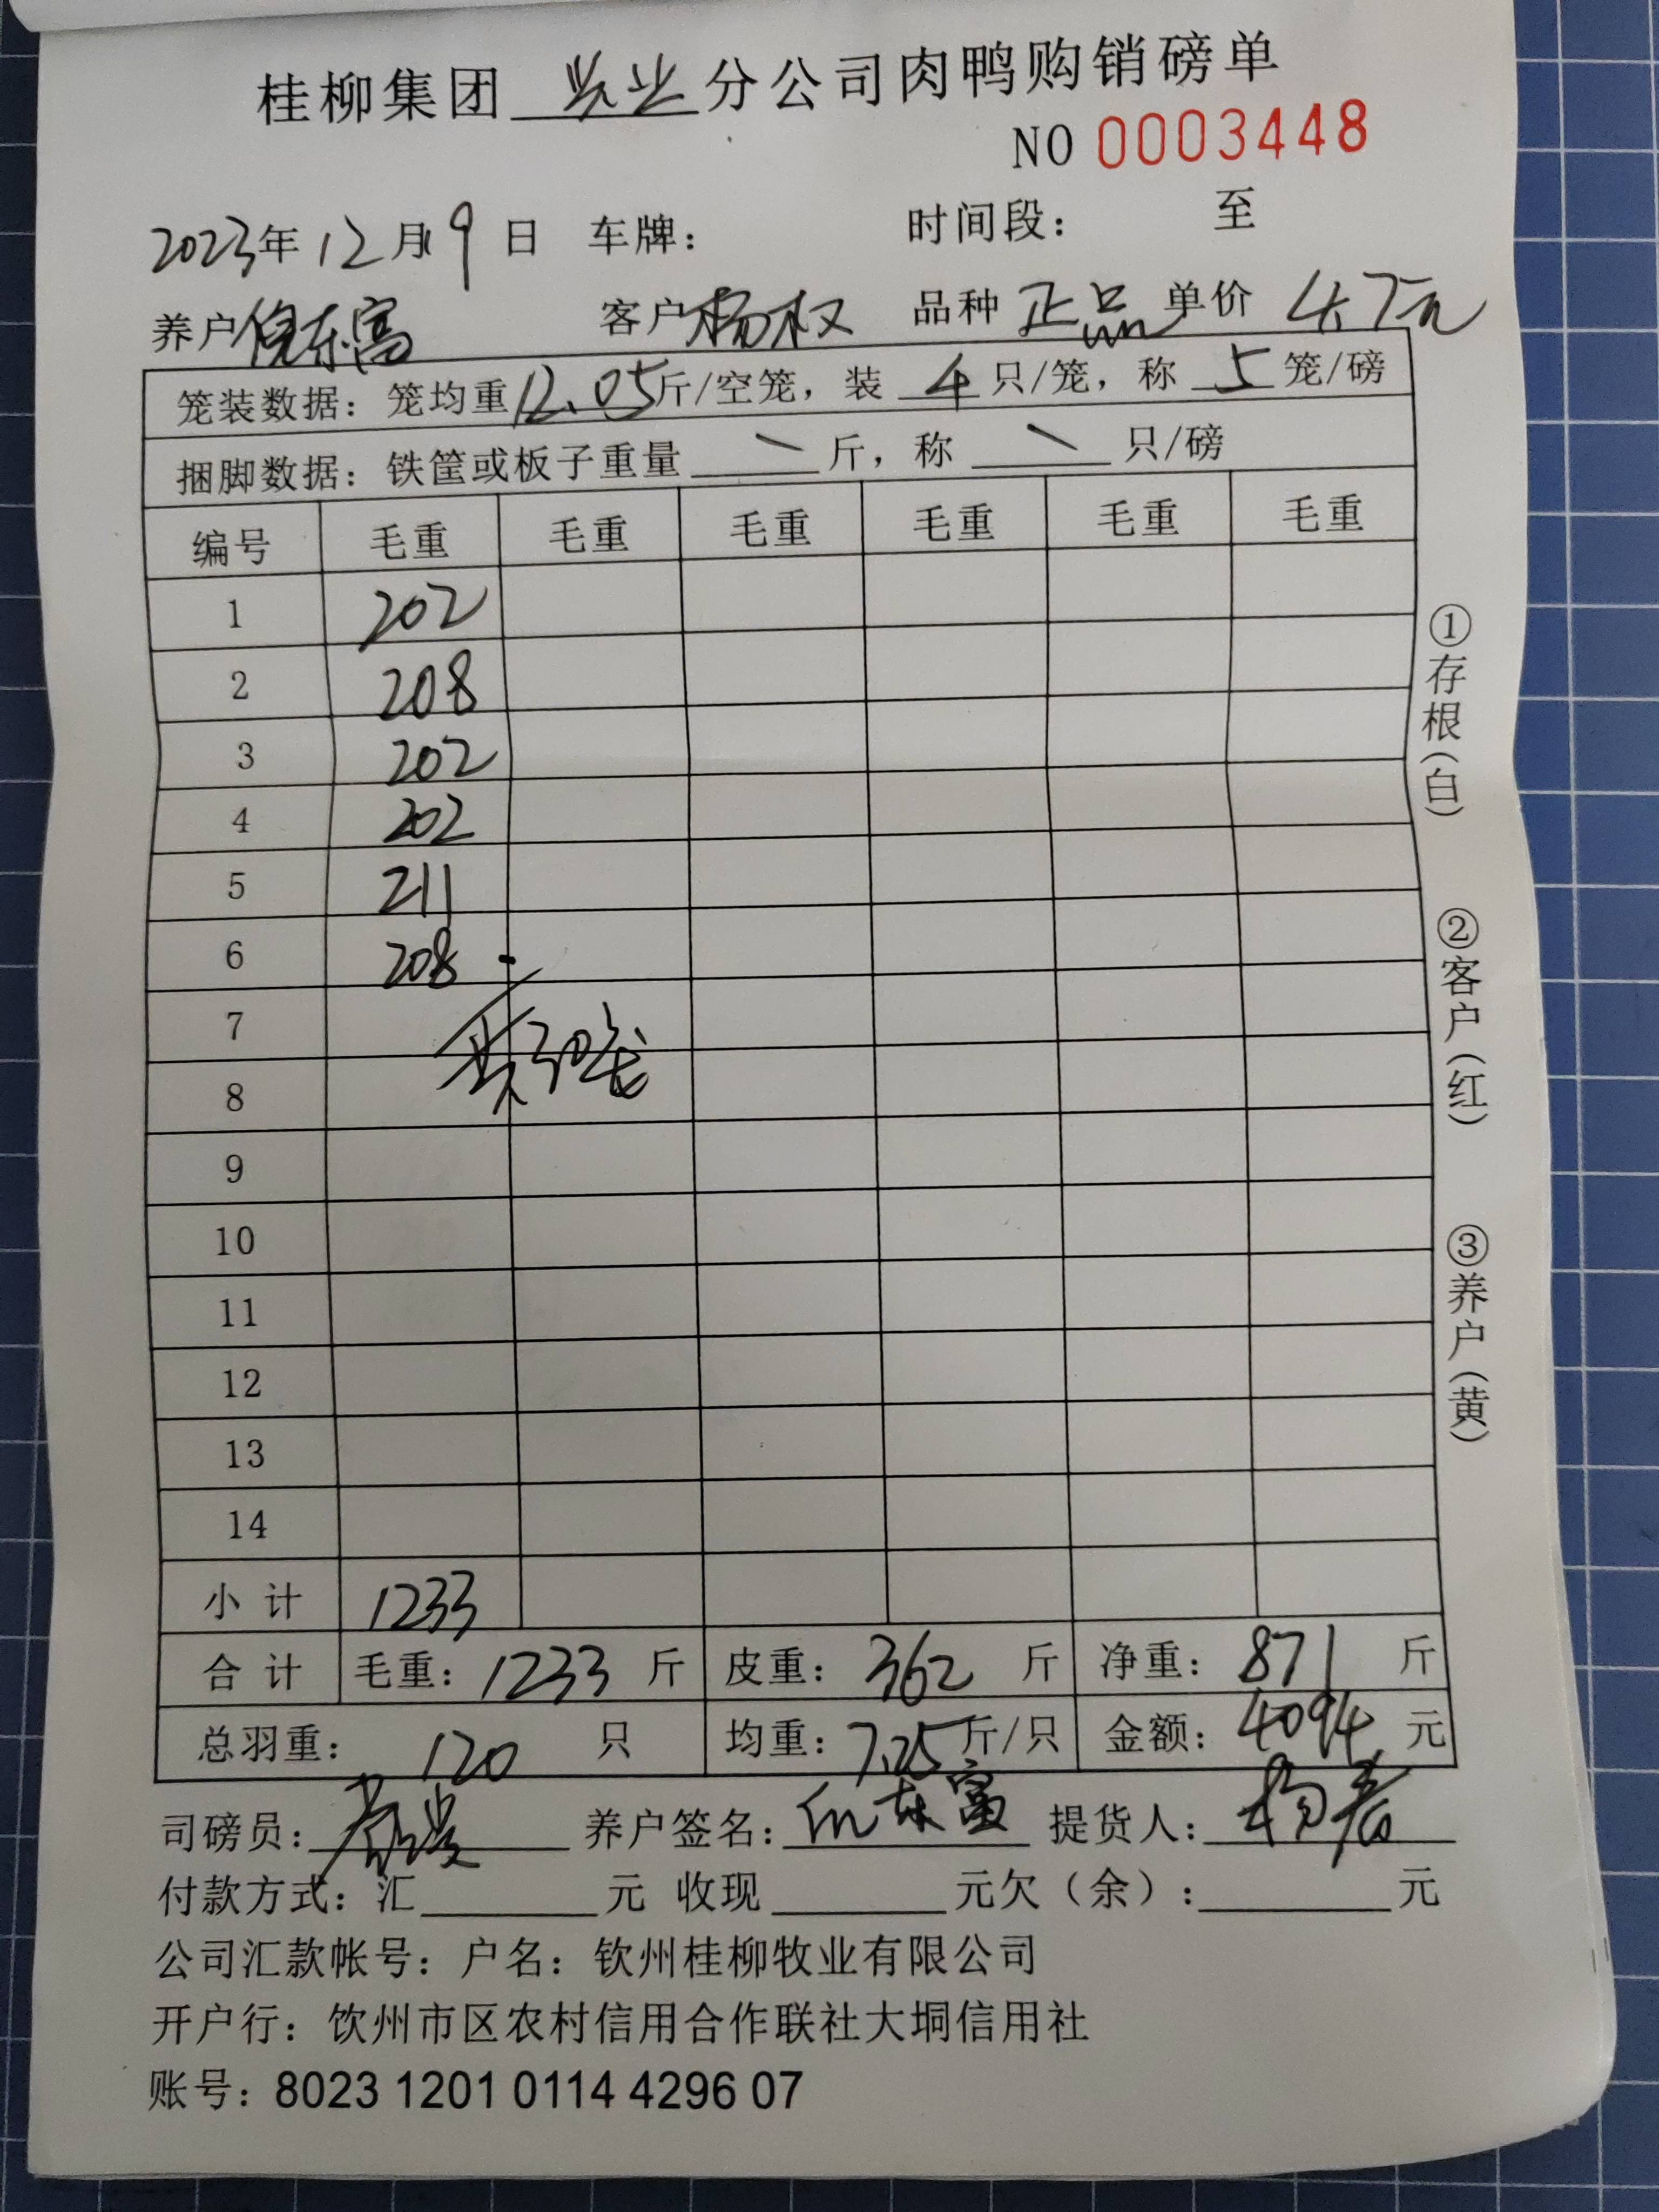 桂柳集团 兴业 分公司肉鸭购销磅单
NO 0003448
2023年 12月 9日 车牌： 时间段： 至
养户 倪东富 客户 杨权 品种 正品 单价 4.7元
笼装数据：笼均重 12.05 斤/空笼，装 4 只/笼，称 5 笼/磅
捆脚数据：铁筐或板子重量 \ 斤，称 \ 只/磅
编号 毛重 毛重 毛重 毛重 毛重 毛重
1 202
2 208
3 202
4 202
5 211
6 208
7
共30笼
8
9
10
11
12
13
14
小计 1233
合计 毛重：1233 斤 皮重：362 斤 净重：871 斤
总羽重：120 只 均重：7.25 斤/只 金额：4094 元
司磅员： 养户签名：倪东富 提货人：杨
付款方式：汇 元 收现 元欠（余）： 元
公司汇款帐号：户名：钦州桂柳牧业有限公司
开户行：饮州市区农村信用合作联社大垌信用社
账号：8023 1201 0114 4296 07
①存根（白）
②客户（红）
③养户（黄）